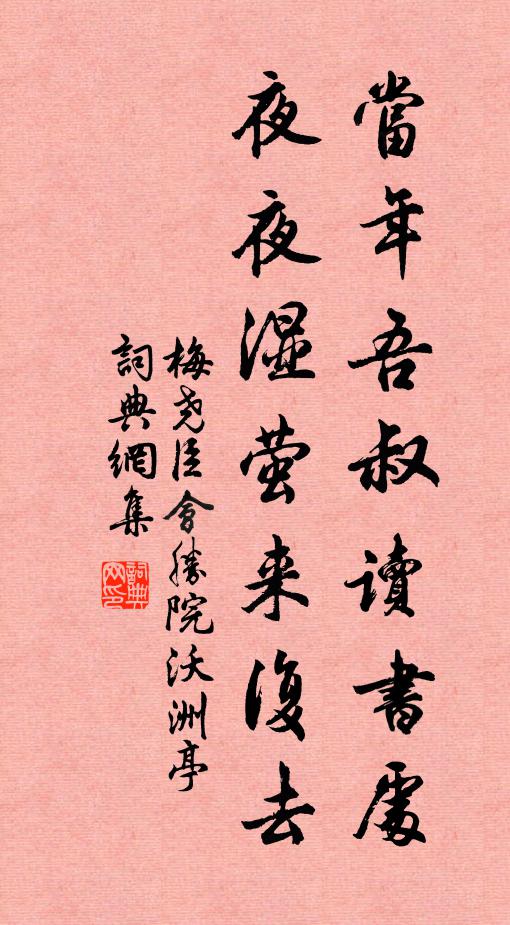 當年吾叔讀書處
夜夜湿萤来復去
梅尧臣會勝院沃洲亭
詞典網集
詞典网印